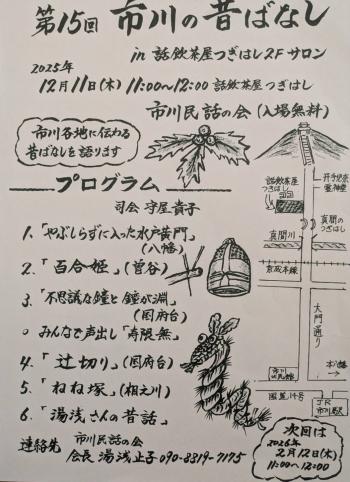 第15回 市川の昔ばなし
in 話飲茶屋つぎはし2F サロン
2025年
12月11日(木) 11:00〜12:00 話飲茶屋つぎはし
市川民話の会 (入場無料)
市川各地に伝わる
昔ばなしを語ります
プログラム
司会 守屋貴子
1.「やぶしらずに入った水戸黄門」
(八幡)
2.「百合姫」(曽谷)
3.「不思議な鐘と鐘が淵」
(国府台)
○ みんなで声出し「寿限無」
4.「辻切り」(国府台)
5.「ねね塚」(相之川)
6.「湯浅さんの昔話」
連絡先 市川民話の会
会長 湯浅止子 090-8319-7175
話飲茶屋
つぎはし
手児奈
霊神堂
真間の
つぎはし
真間川
京成本線
大門通り
本八幡
国道14号
JR
市川駅
次回は
2026年
2月12日(木)
11:00〜12:00